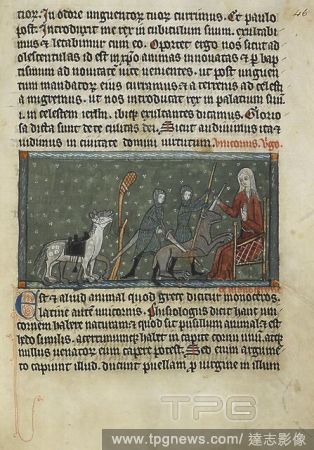 46
tior. In odore unguentorum tuorum currimus. Et paulo
post. Introduxit me rex in cubiculum suum. exultabi
mus & letabimur cum eo. Oportet ergo nos sicut ad
olescentulas id est in xpo animas innovatas & p bap
tismum ad novitatem vite venientes. ut post unguen
tum mandatorum eius curramus & a terrenis ad celest
a migremus. ut nos introducat rex in palacium suum
i. in celestem ubi exultantes dicamus. Glorio
sa dicta sunt de te civitas dei. Sicut audivimus ita &
vidimus in civitate domini virtutum. Unicornis. Virgo.
Est & aliud animal quod grece dicitur monoceros
latine autem unicornis. Phisiologus dicit hanc uni
cornem habere naturam & quod sit pusillum animal & est
hedo similis. acerrimum habet in capite cornu unum. atque
nullus venator eum capere potest. Sed eum argumento
capiunt illud. ducunt puellam virginem in illum
TPG
www.tpgnews.com | 達志影像